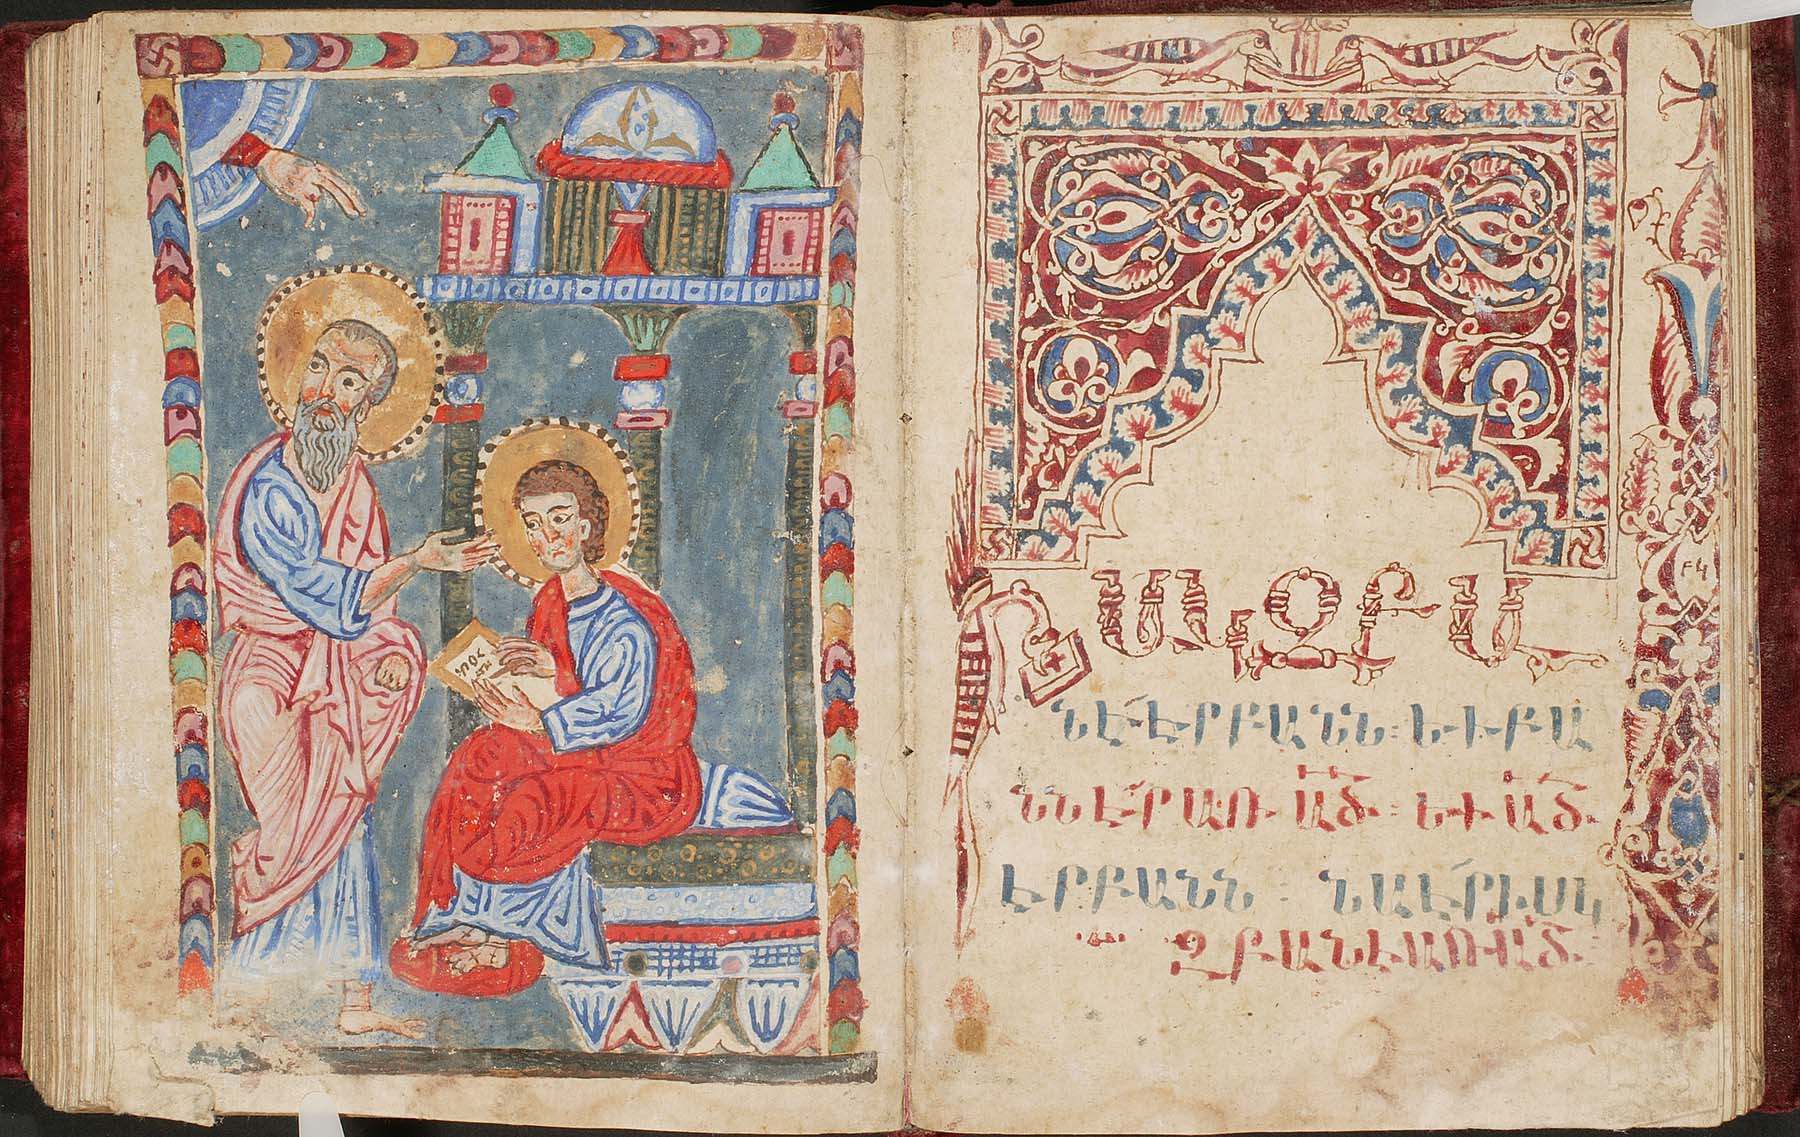 ԻՍԿԶԲԱ
ՆԷ ԷՐ ԲԱՆՆ։ ԵՒ ԲԱ
ՆՆ ԷՐ ԱՌ ԱԾ։ ԵՒ ԱԾ
ԷՐ ԲԱՆՆ։ ՆԱ ԷՐ Ի ՍԿ
ԶԲԱՆԷ ԱՌ ԱԾ։